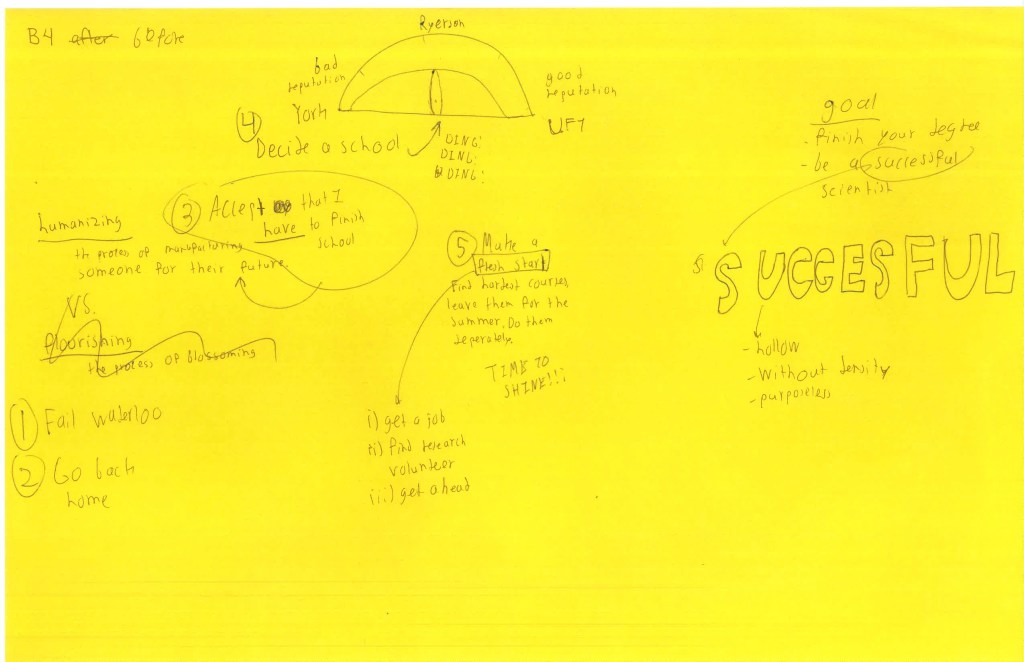 B4 after before
Ryerson
bad
reputation
good
reputation
York
UFT
4
Decide a school
DING!
DING!
DING!
goal
- Finish your degree
- be a successful
scientist
humanizing
the process of manufacturing
someone for their future.
3 Accept that I
have to finish
school
VS.
flourishing
the process of blossoming
5 Make a
fresh start
Find hardest courses,
leave them for the
summer. Do them
seperately.
TIME TO
SHINE!!!
i) get a job
ii) find research
volunteer
iii) get ahead
SUCCESFUL
- hollow
- without density
- purposeless
1 Fail Waterloo
2 Go back
home